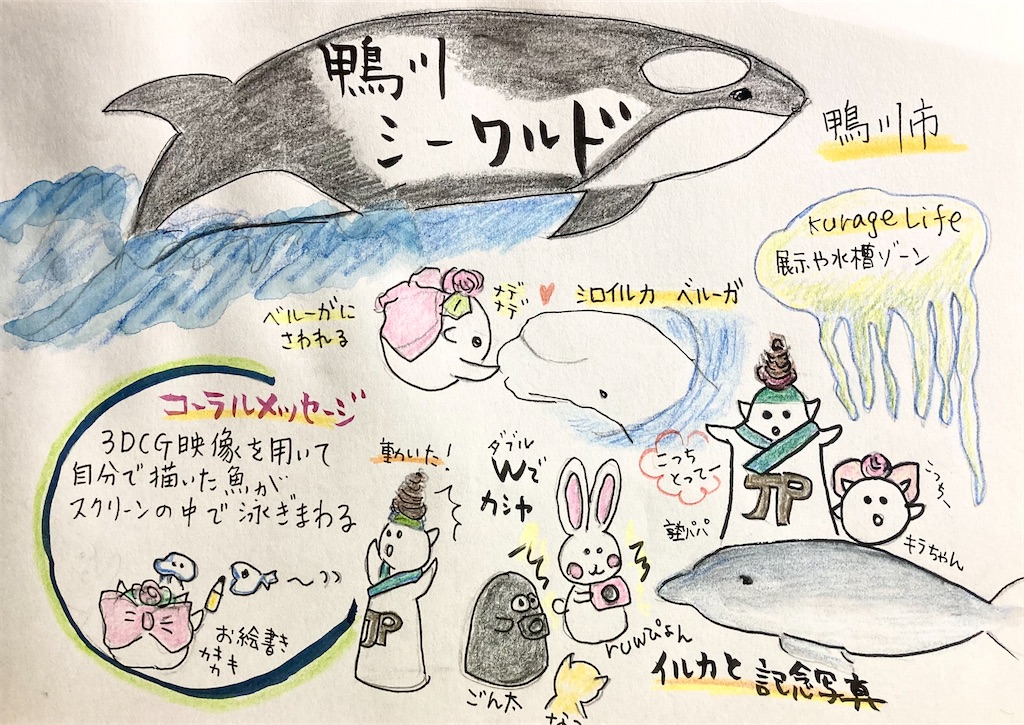 鴨川
シーワルド
鴨川市
kurage Life
展示や水槽ゾーン
ナデ
ナデ
シロイルカ ベルーガ
ベルーガに
さわれる
コーラルメッセージ
3DCG映像を用いて
自分で描いた魚が
スクリーンの中で泳ぎまわる
お絵書き
カキ
カキ
動いた!
JP
ダブル
Wで
カシャ
こっち
とってー
JP
塾パパ
こっちへ
キラちゃん
ruwぴょん
ごん太
イルカと記念写真